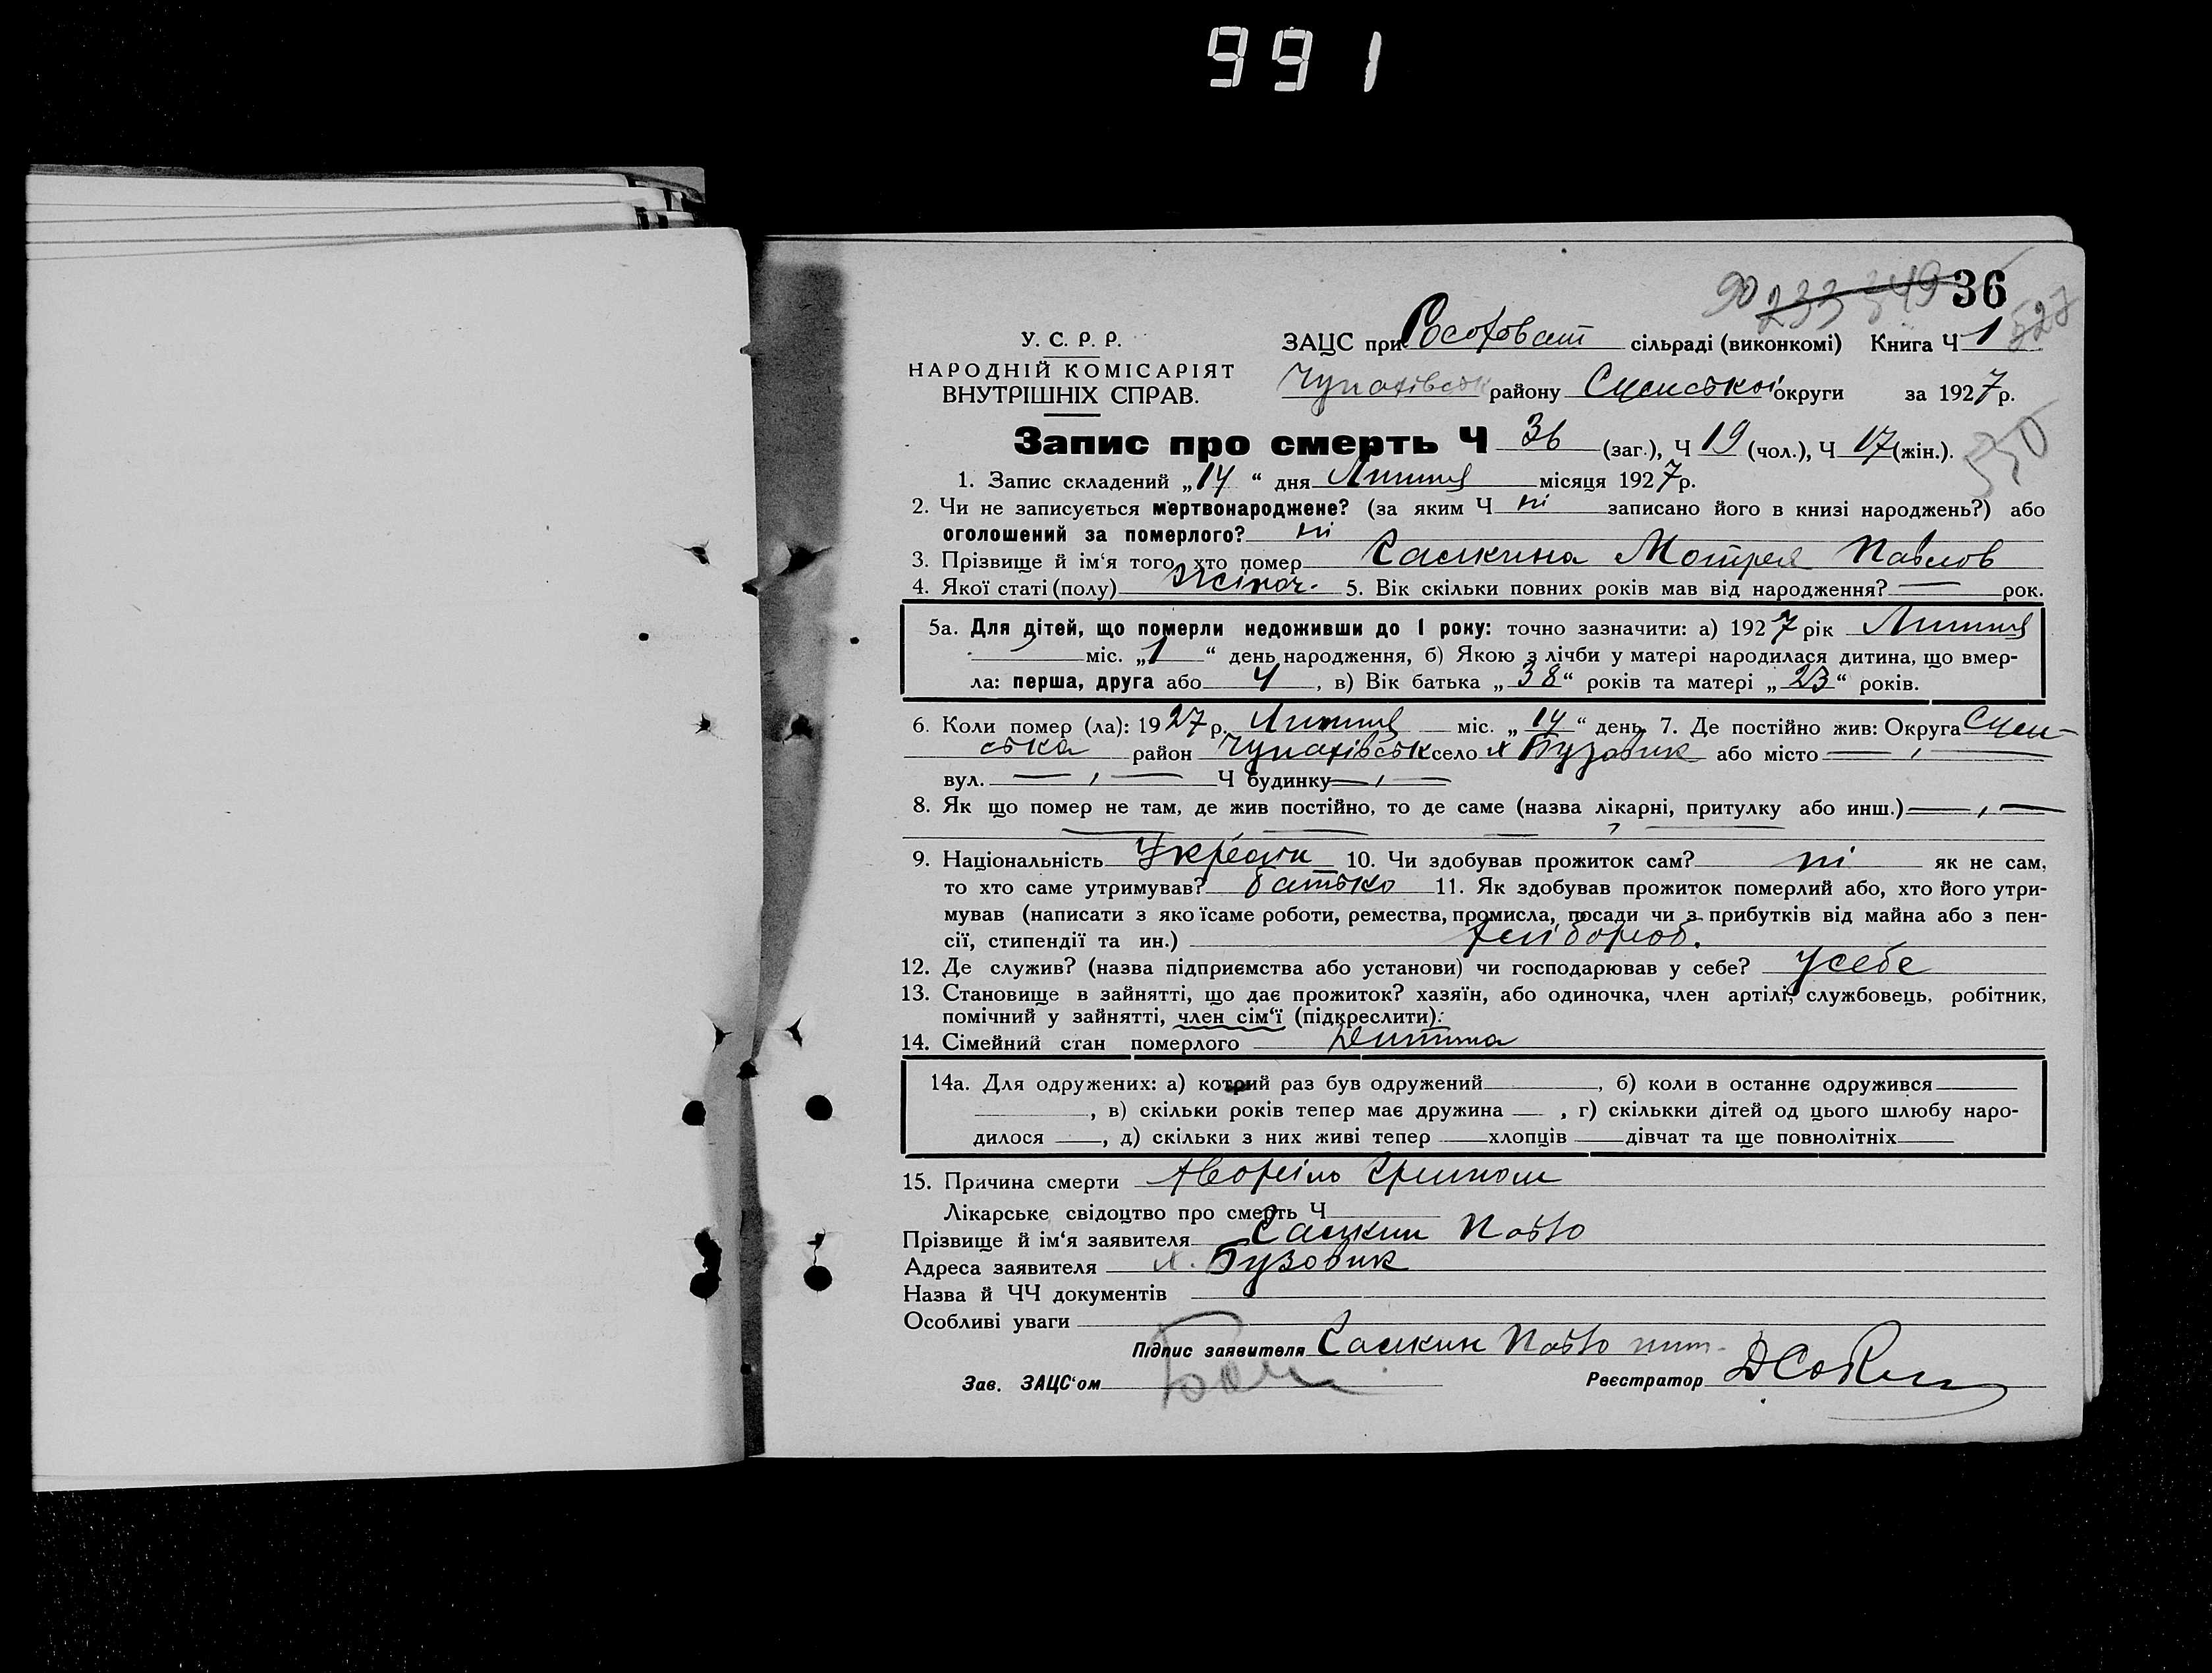 991
90 233 349 36
527
У. С. Р. Р.
НАРОДНІЙ КОМІСАРІЯТ
ВНУТРІШНІХ СПРАВ.
ЗАЦС при Росохват сільраді (виконкомі) Книга Ч 1
Чупахівськ району Сумської округи за 1927 р.
Запис про смерть Ч 36 (заг.), Ч 19 (чол.), Ч 17 (жін.).
350
1. Запис складений „14“ дня Липця місяця 1927 р.
2. Чи не записується мертвонароджене? (за яким Ч ні записано його в книзі народжень?) або
оголошений за померлого? ні
3. Прізвище й ім‘я того, хто помер Мотря Павлов
4. Якої статі (полу) жіноч. 5. Вік скільки повних років мав від народження? — рок.
5а. Для дітей, що померли недоживши до 1 року: точно зазначити: а) 1927 рік Липця
міс. „1“ день народження, б) Якою з лічби у матері народилася дитина, що вмер-
ла: перша, друга або 4, в) Вік батька „38“ років та матері „23“ років.
6. Коли помер (ла): 1927 р. Липця міс. „14“ день, 7. Де постійно жив: Округа Сум-
ська район Чупахівськ село х Бузовик або місто
вул. Ч будинку
8. Як що помер не там, де жив постійно, то де саме (назва лікарні, притулку або инш.)
9. Національність Україн 10. Чи здобував прожиток сам? ні як не сам,
то хто саме утримував? батько 11. Як здобував прожиток померлий або, хто його утри-
мував (написати з якоїсаме роботи, ремества, промисла, посади чи з прибутків від майна або з пен-
сії, стипендії та ин.) хлібороб.
12. Де служив? (назва підприємства або установи) чи господарював у себе? у себе
13. Становище в зайнятті, що дає прожиток? хазяїн, або одиночка, член артілі, службовець, робітник,
помічний у зайнятті, член сім‘ї (підкреслити):
14. Сімейний стан померлого Дитина
14а. Для одружених: а) котрий раз був одружений, б) коли в останнє одружився
, в) скільки років тепер має дружина — , г) скількки дітей од цього шлюбу наро-
дилося —, д) скільки з них живі тепер — хлопців — дівчат та ще повнолітніх
15. Причина смерти
Лікарське свідоцтво про смерть Ч
Прізвище й ім‘я заявителя
Адреса заявителя х. Бузовик
Назва й ЧЧ документів
Особливі уваги
Підпис заявителя
Зав. ЗАЦС‘ом
Реєстратор